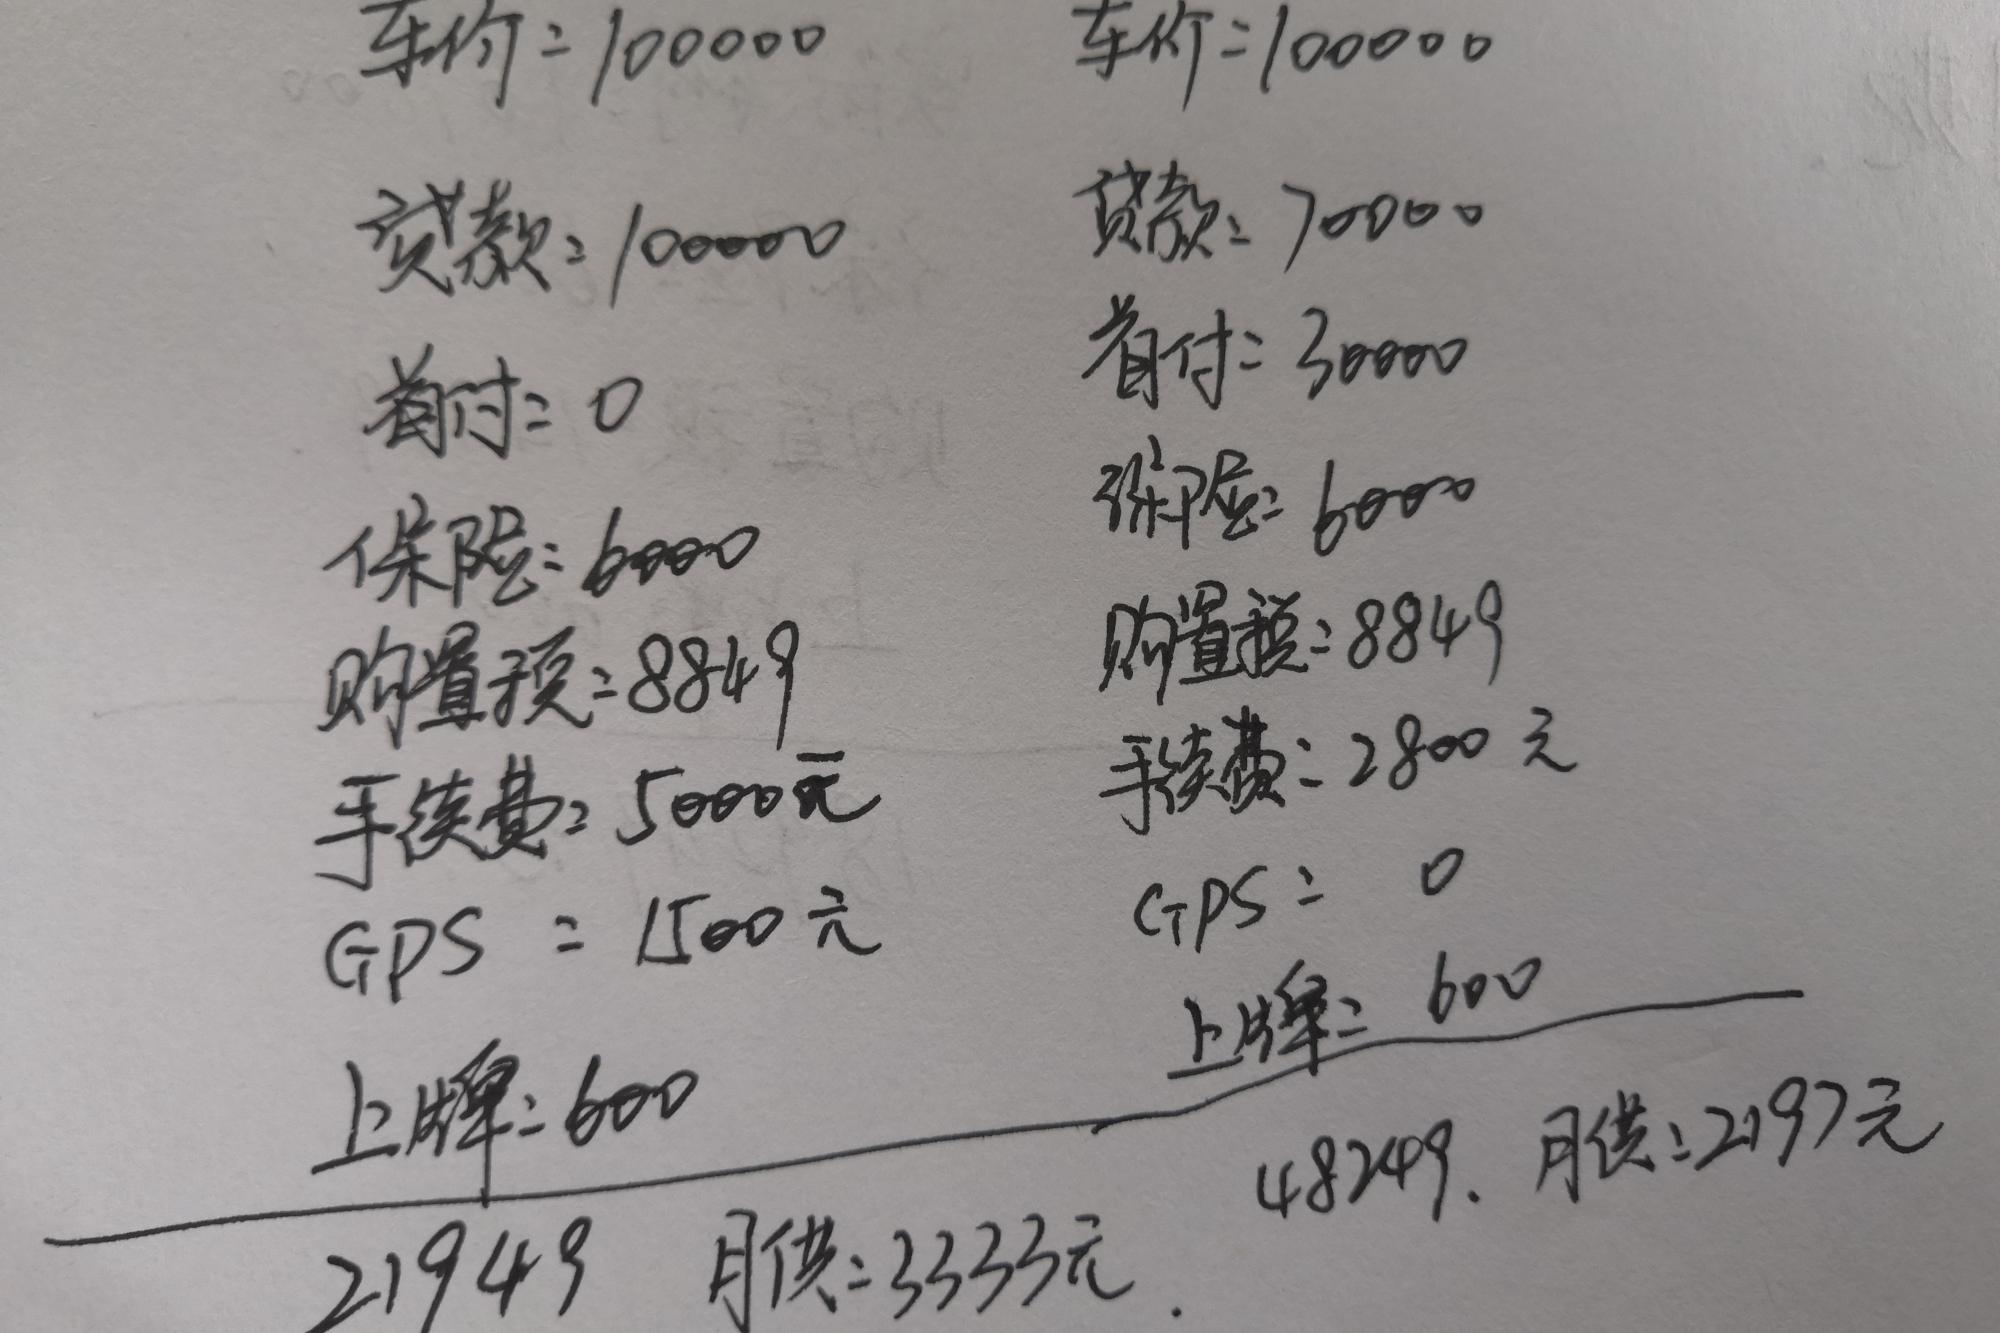 车价=100000
贷款=100000
首付=0
保险=6000
购置税=8849
手续费=5000元
GPS = 1500元
上牌=600
21949 月供=3333元.
车价=100000
贷款=70000
首付=30000
保险=6000
购置税=8849
手续费=2800元
GPS= 0
上牌= 600
48249. 月供=2197元